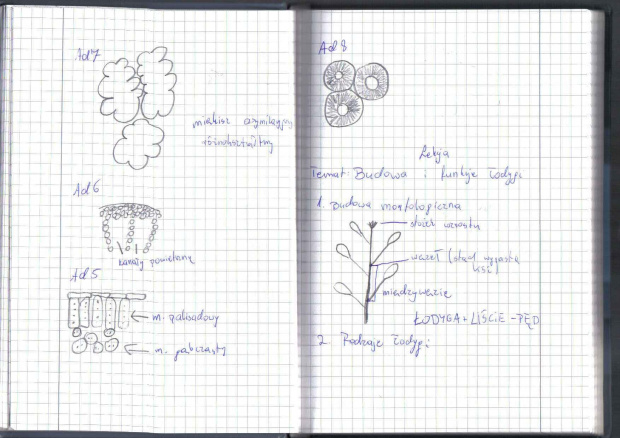 Ad 7
miękisz asymilacyjny
różnokształtny
Ad 6
kanały powietrzne
Ad 5
m. palisadowy
m. gąbczasty
Ad 8
Lekcja
Temat: Budowa i funkcje łodygi
1. Budowa morfologiczna
stożek wzrostu
węzeł (stąd wyrasta
liść)
międzywęźle
ŁODYGA + LIŚCIE - PĘD
2. Rodzaje łodygi